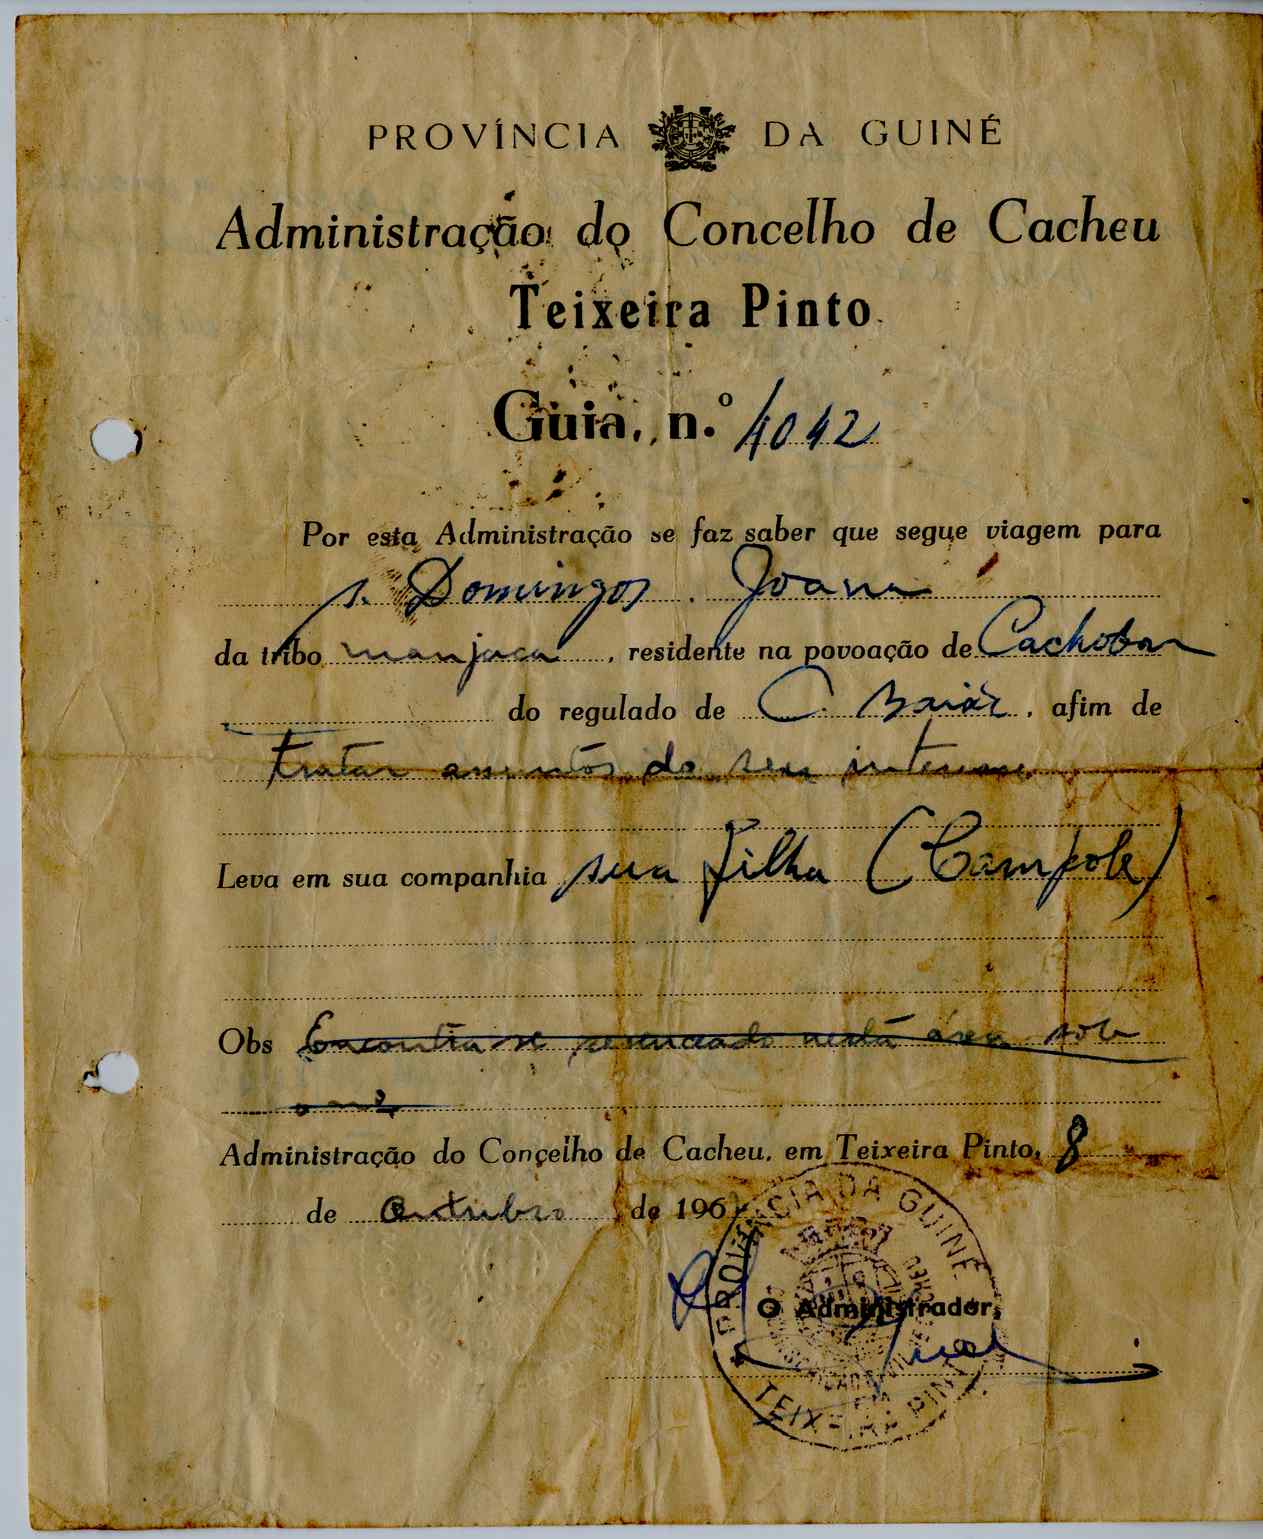 PROVÍNCIA DA GUINÉ
Administração do Concelho de Cacheu
Teixeira Pinto
Guia, n.º 4042
Por esta Administração se faz saber que segue viagem para
s. Domingos. Joana
da tribo manjaca, residente na povoação de Cachobar
do regulado de C. , afim de
tratar assuntos do seu interesse
Leva em sua companhia sua filha (Campole)
Obs Encontra-se nesta área sob
Administração do Concelho de Cacheu, em Teixeira Pinto, 8
de Outubro de 196
PROVÍNCIA DA GUINÉ
O Administrador,
TEIXEIRA PINTO